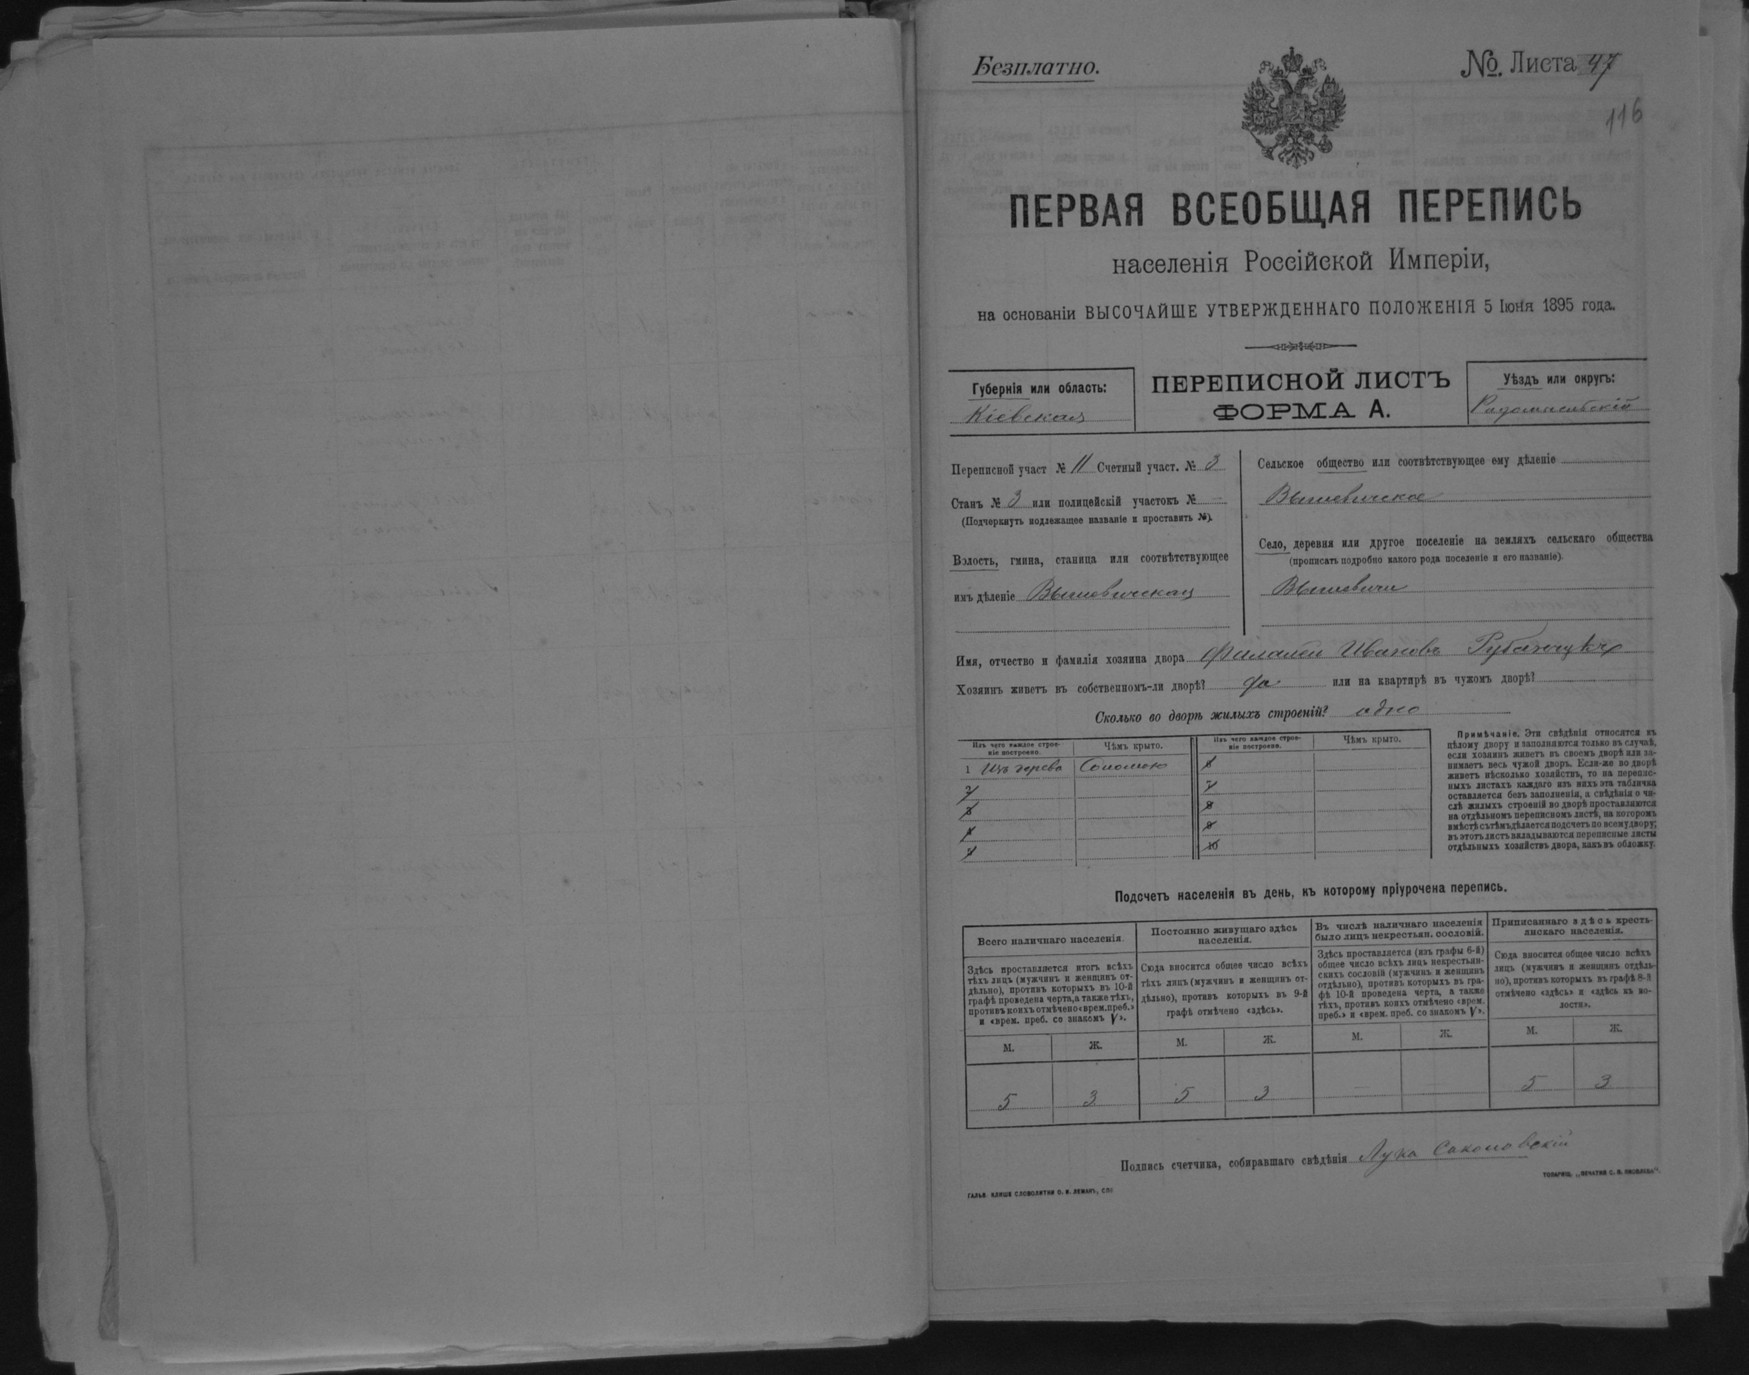 Безплатно.
№. Листа 47
116
ПЕРВАЯ ВСЕОБЩАЯ ПЕРЕПИСЬ
населенія Россійской Имперіи,
на основаніи ВЫСОЧАЙШЕ УТВЕРЖДЕННАГО ПОЛОЖЕНІЯ 5 Іюня 1895 года.
Губернія или область:
Кіевская
ПЕРЕПИСНОЙ ЛИСТЪ
ФОРМА А.
Уѣздъ или округъ:
Радомысльскій
Переписной участ № 11 Счетный участ. № 3
Станъ № 3 или полицейскій участокъ № —
(Подчеркнуть подлежащее названіе и проставить №).
Волость, гмина, станица или соотвѣтствующее
имъ дѣленіе Вышевическая
Сельское общество или соотвѣтствующее ему дѣленіе
Вышевическое
Село, деревня или другое поселеніе на земляхъ сельскаго общества
(прописать подробно какого рода поселеніе и его названіе).
Вышевичи
Имя, отчество и фамилія хозяина двора Ивановъ
Хозяинъ живетъ въ собственномъ-ли дворѣ? да или на квартирѣ въ чужомъ дворѣ?
Сколько во дворѣ жилыхъ строеній? одно
Изъ чего каждое строе-
ніе построено.
Чѣмъ крыто.
Изъ чего каждое строе-
ніе построено.
Чѣмъ крыто.
1 Изъ дерева Соломою
6
2
7
3
8
4
9
5
10
Примѣчаніе. Эти свѣдѣнія относятся къ
цѣлому двору и заполняются только въ случаѣ,
если хозяинъ живетъ въ своемъ дворѣ или за-
нимаетъ весь чужой дворъ. Если-же во дворѣ
живетъ нѣсколько хозяйствъ, то на перепис-
ныхъ листахъ каждаго изъ нихъ эта табличка
оставляется безъ заполненія, а свѣдѣнія о чи-
слѣ жилыхъ строеній во дворѣ проставляются
на отдѣльномъ переписномъ листѣ, на которомъ
вмѣстѣ съ тѣмъ дѣлается подсчетъ по всему двору;
въ этотъ листъ вкладываются переписные листы
отдѣльныхъ хозяйствъ двора, какъ въ обложку.
Подсчетъ населенія въ день, къ которому пріурочена перепись.
Всего наличнаго населенія.
Здѣсь проставляется итогъ всѣхъ
тѣхъ лицъ (мужчинъ и женщинъ от-
дѣльно), противъ которыхъ въ 10-й
графѣ проведена черта, а также тѣхъ,
противъ коихъ отмѣчено «врем. преб.»
и «врем. преб. со знакомъ V».
Постоянно живущаго здѣсь
населенія.
Сюда вносится общее число всѣхъ
тѣхъ лицъ (мужчинъ и женщинъ от-
дѣльно), противъ которыхъ въ 9-й
графѣ отмѣчено «здѣсь».
Въ числѣ наличнаго населенія
было лицъ некрестьян. сословій.
Здѣсь проставляется (изъ графы 6-й)
общее число всѣхъ лицъ некрестьян-
скихъ сословій (мужчинъ и женщинъ
отдѣльно), противъ которыхъ въ гра-
фѣ 10-й проведена черта, а также
тѣхъ, противъ коихъ отмѣчено «врем.
преб.» и «врем. преб. со знакомъ V».
Приписаннаго здѣсь кресть-
янскаго населенія.
Сюда вносится общее число всѣхъ
лицъ (мужчинъ и женщинъ отдѣль-
но), противъ которыхъ въ графѣ 8-й
отмѣчено «здѣсь» и «здѣсь къ во-
лости».
М. Ж. М. Ж. М. Ж. М. Ж.
5 3 5 3 — — 5 3
Подпись счетчика, собиравшаго свѣдѣнія Лука Соколовскій
ГАЛЬВ. КЛИШЕ СЛОВОЛИТНИ О. И. ЛЕМАНЪ, СПБ
ТОВАРИЩ. „ПЕЧАТНЯ С. П. ЯКОВЛЕВА".